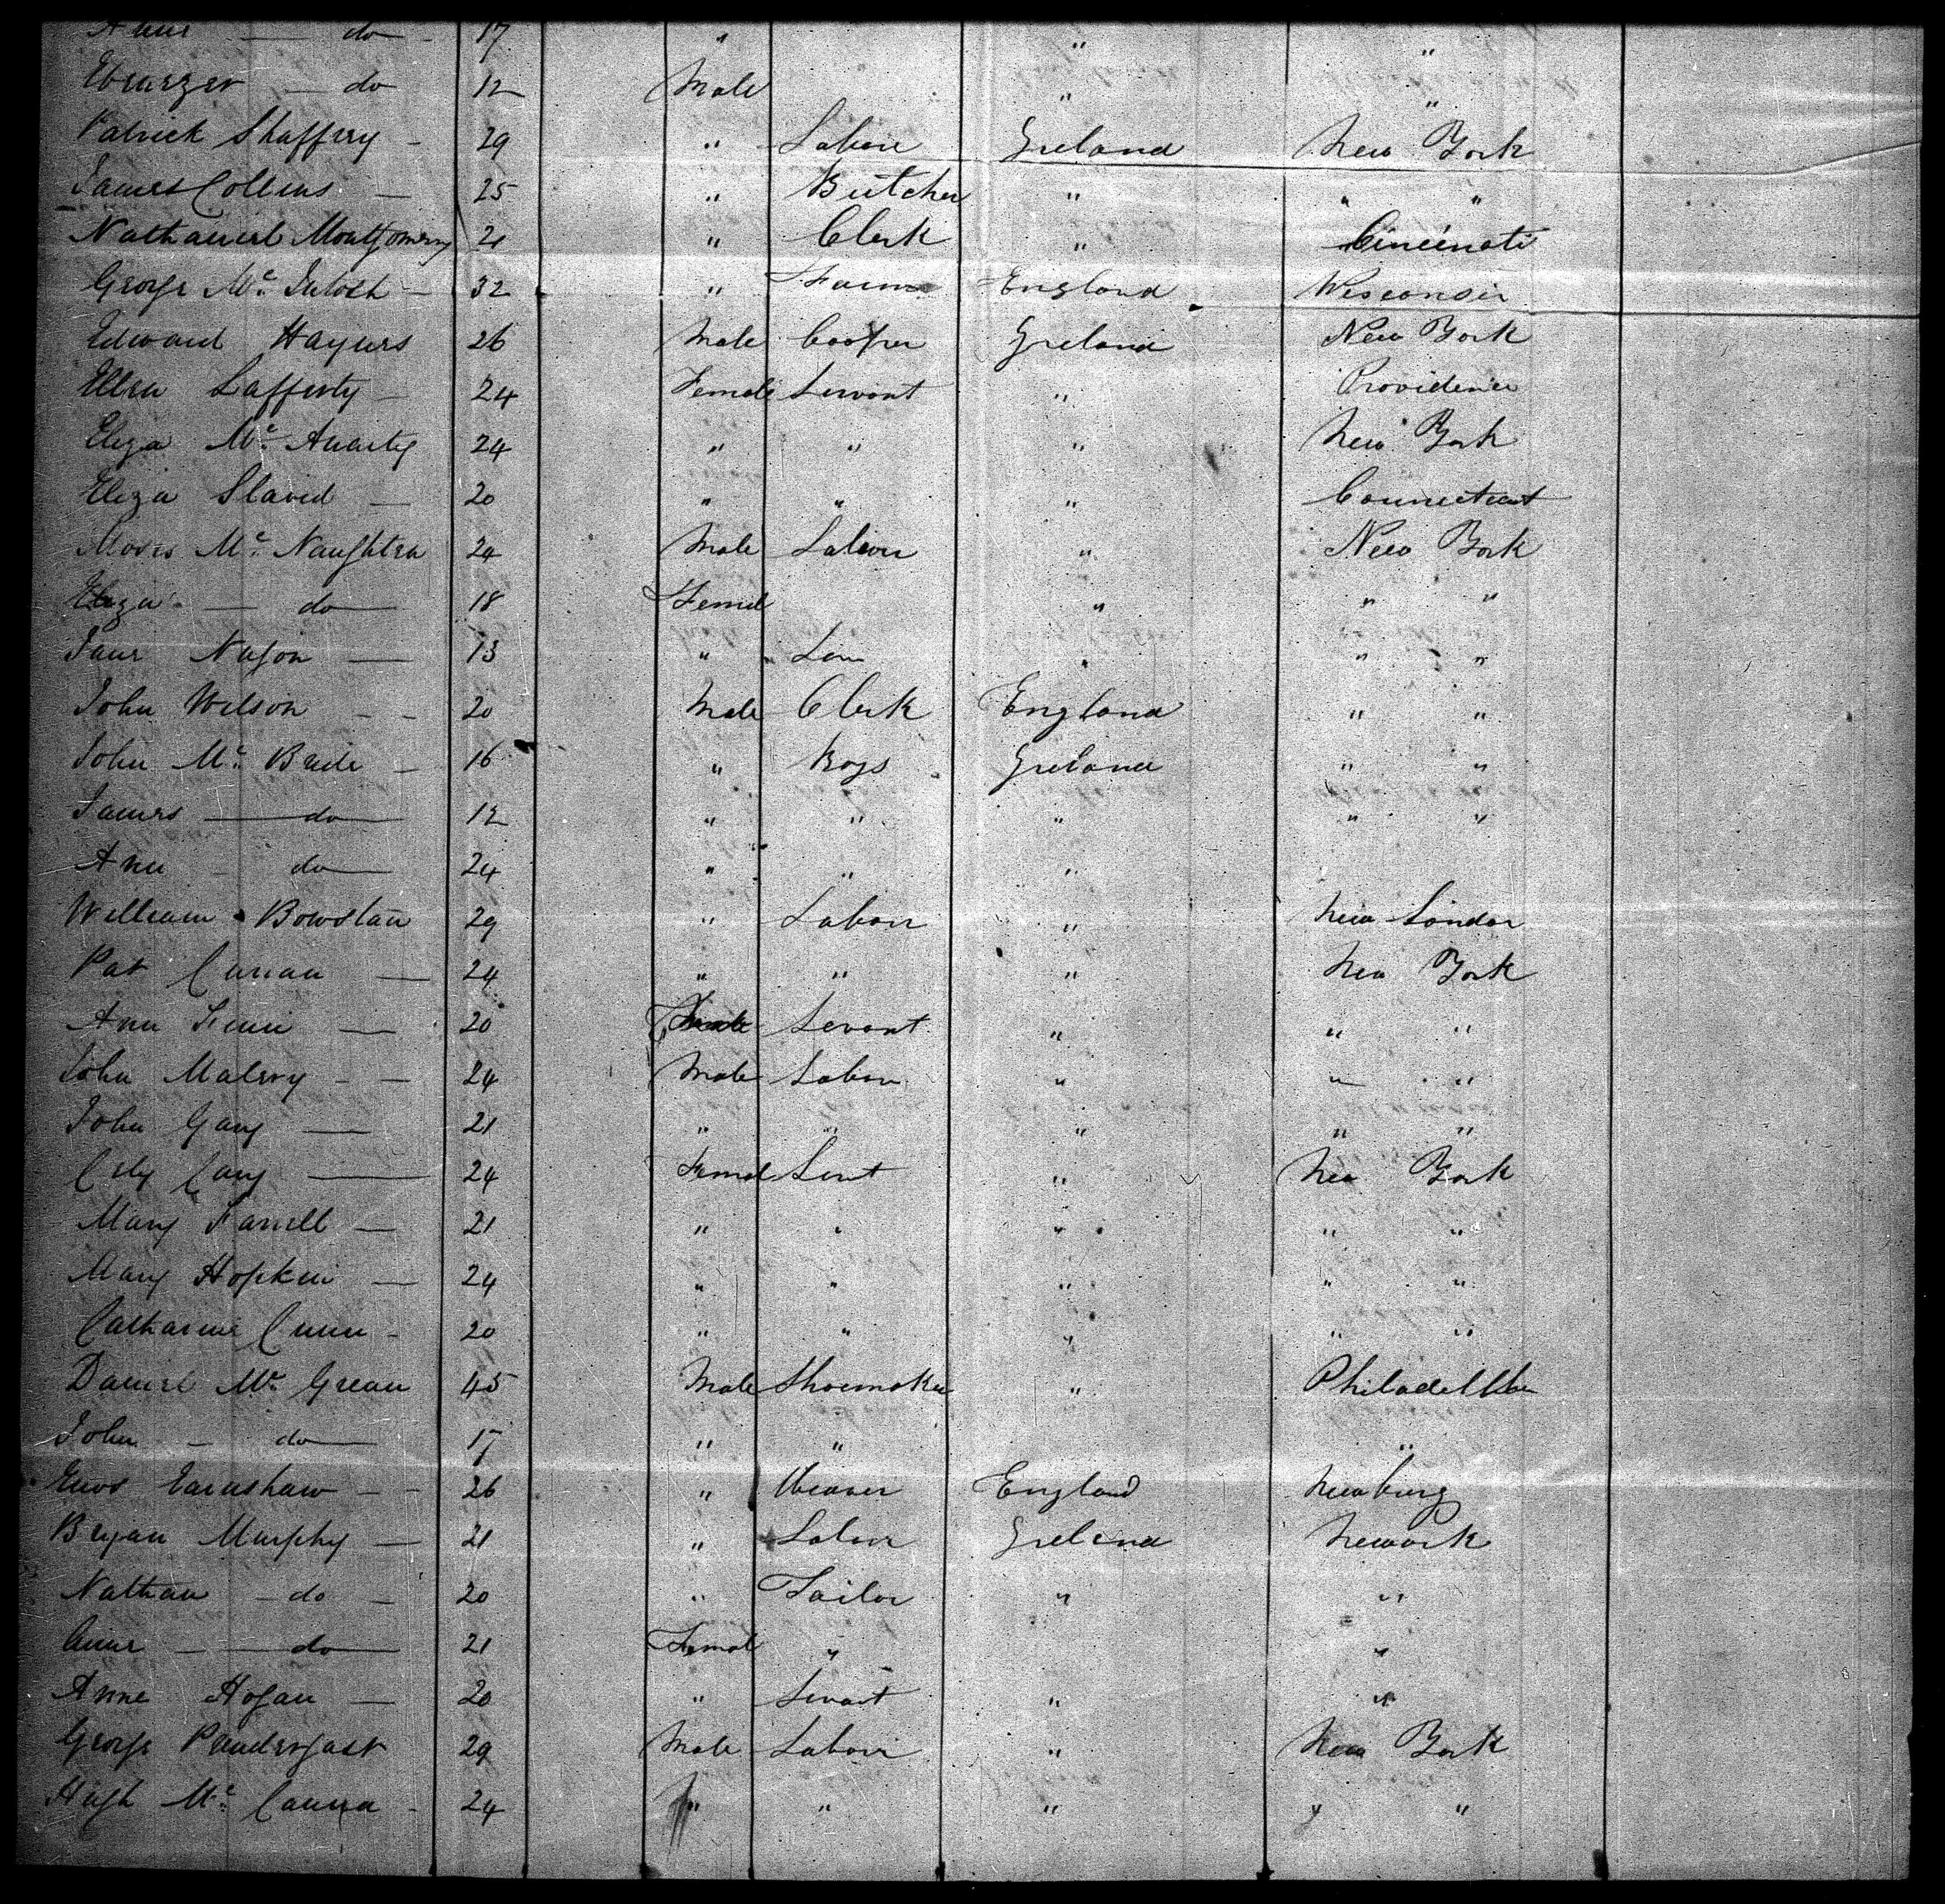 do 17 " " "
Ebenezer — do 12 Male " "
Patrick Shaffery - 29 " Labore Ireland New York
James Collins — 25 " Butcher " " "
Nathaniel Montgomery 21 " Clerk " Cincinati
George Mc. Intosh - 32 " Farm England Wisconsin
Edward Hayers 26 Male Cooper Ireland New York
Ellen Lafferty — 24 Female Servant " Providence
Eliza Mc. 24 " " " New York
Eliza Slavid — 20 " " " Connecticut
Moses Mc. Naughten 24 Male Labour " New York
Eliza — do — 18 Femal " " "
Jane Nason — 13 " " "
John Wilson - - 20 Male Clerk England " "
John Mc. Bride - 16 " Boys Ireland " "
James — do — 12 " " " " "
Ann - do — 24 " " "
William Bowstan 29 " Labour " New London
Pat Curran — 24 " " " New York
Ann — 20 Female Servant " " "
John Malery - - 24 Male Labour " " "
John Gary — 21 " " " " "
Cary — 24 Femal Sert " New York
Mary Farrell — 21 " " " " "
Mary Hopkin — 24 " " " " "
Catharine - 20 " " " " "
Daniel Mc. Grean 45 Male Shoemaker " Philadelphia
John - do — 17 " " "
Enos Earnshaw - - 26 " Weaver England Newburg
Bryan Murphy — 21 " Labor Ireland Newark
Nathan - do - 20 " Tailor " "
Anne — do — 21 Femal " "
Anne Hogan — 20 " Servant " "
George Pendergast 29 Male Labour " New York
Hugh Mc. Canna - 24 " " " " "